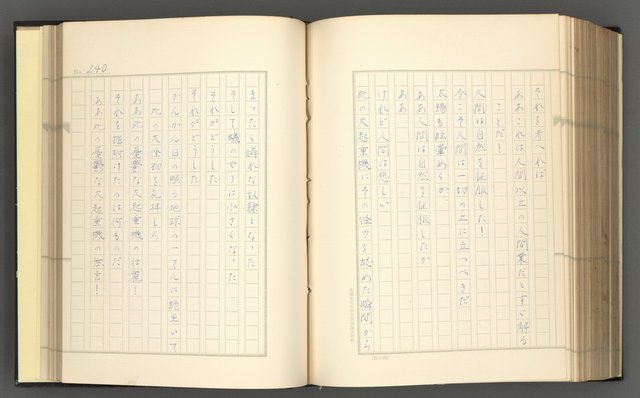 それを考へれば
ああこれは人間以上の人間業だとすぐ解る
ことだ!
人間は自然を征服した!
今こそ人間は一切の上に立つべきだ
太陽も眩暈めくか
ああ人間は自然を征服したか
ああ
けれど人間は悲しい
此の大起重機にその怪力を認めた瞬間から
No. 240
まつたく憐れな奴隷となつた
そして蟻のやうに小さくなつた
それがどうした
それがどうした
かんかん日の照る地球の一てんに跪坐いて
此の大怪物を礼拝しろ
ああ此の憂鬱な大起重機の壮麗!
それを据附けたのは何ものだ
ああ此の憂鬱な大起重機の無言!